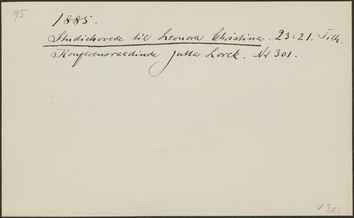 95
1885.
Studiehovede til Leonora Christina. 23 x 21. Tilh.
Konferensraadinde Jutta Lorck. Nr 301.